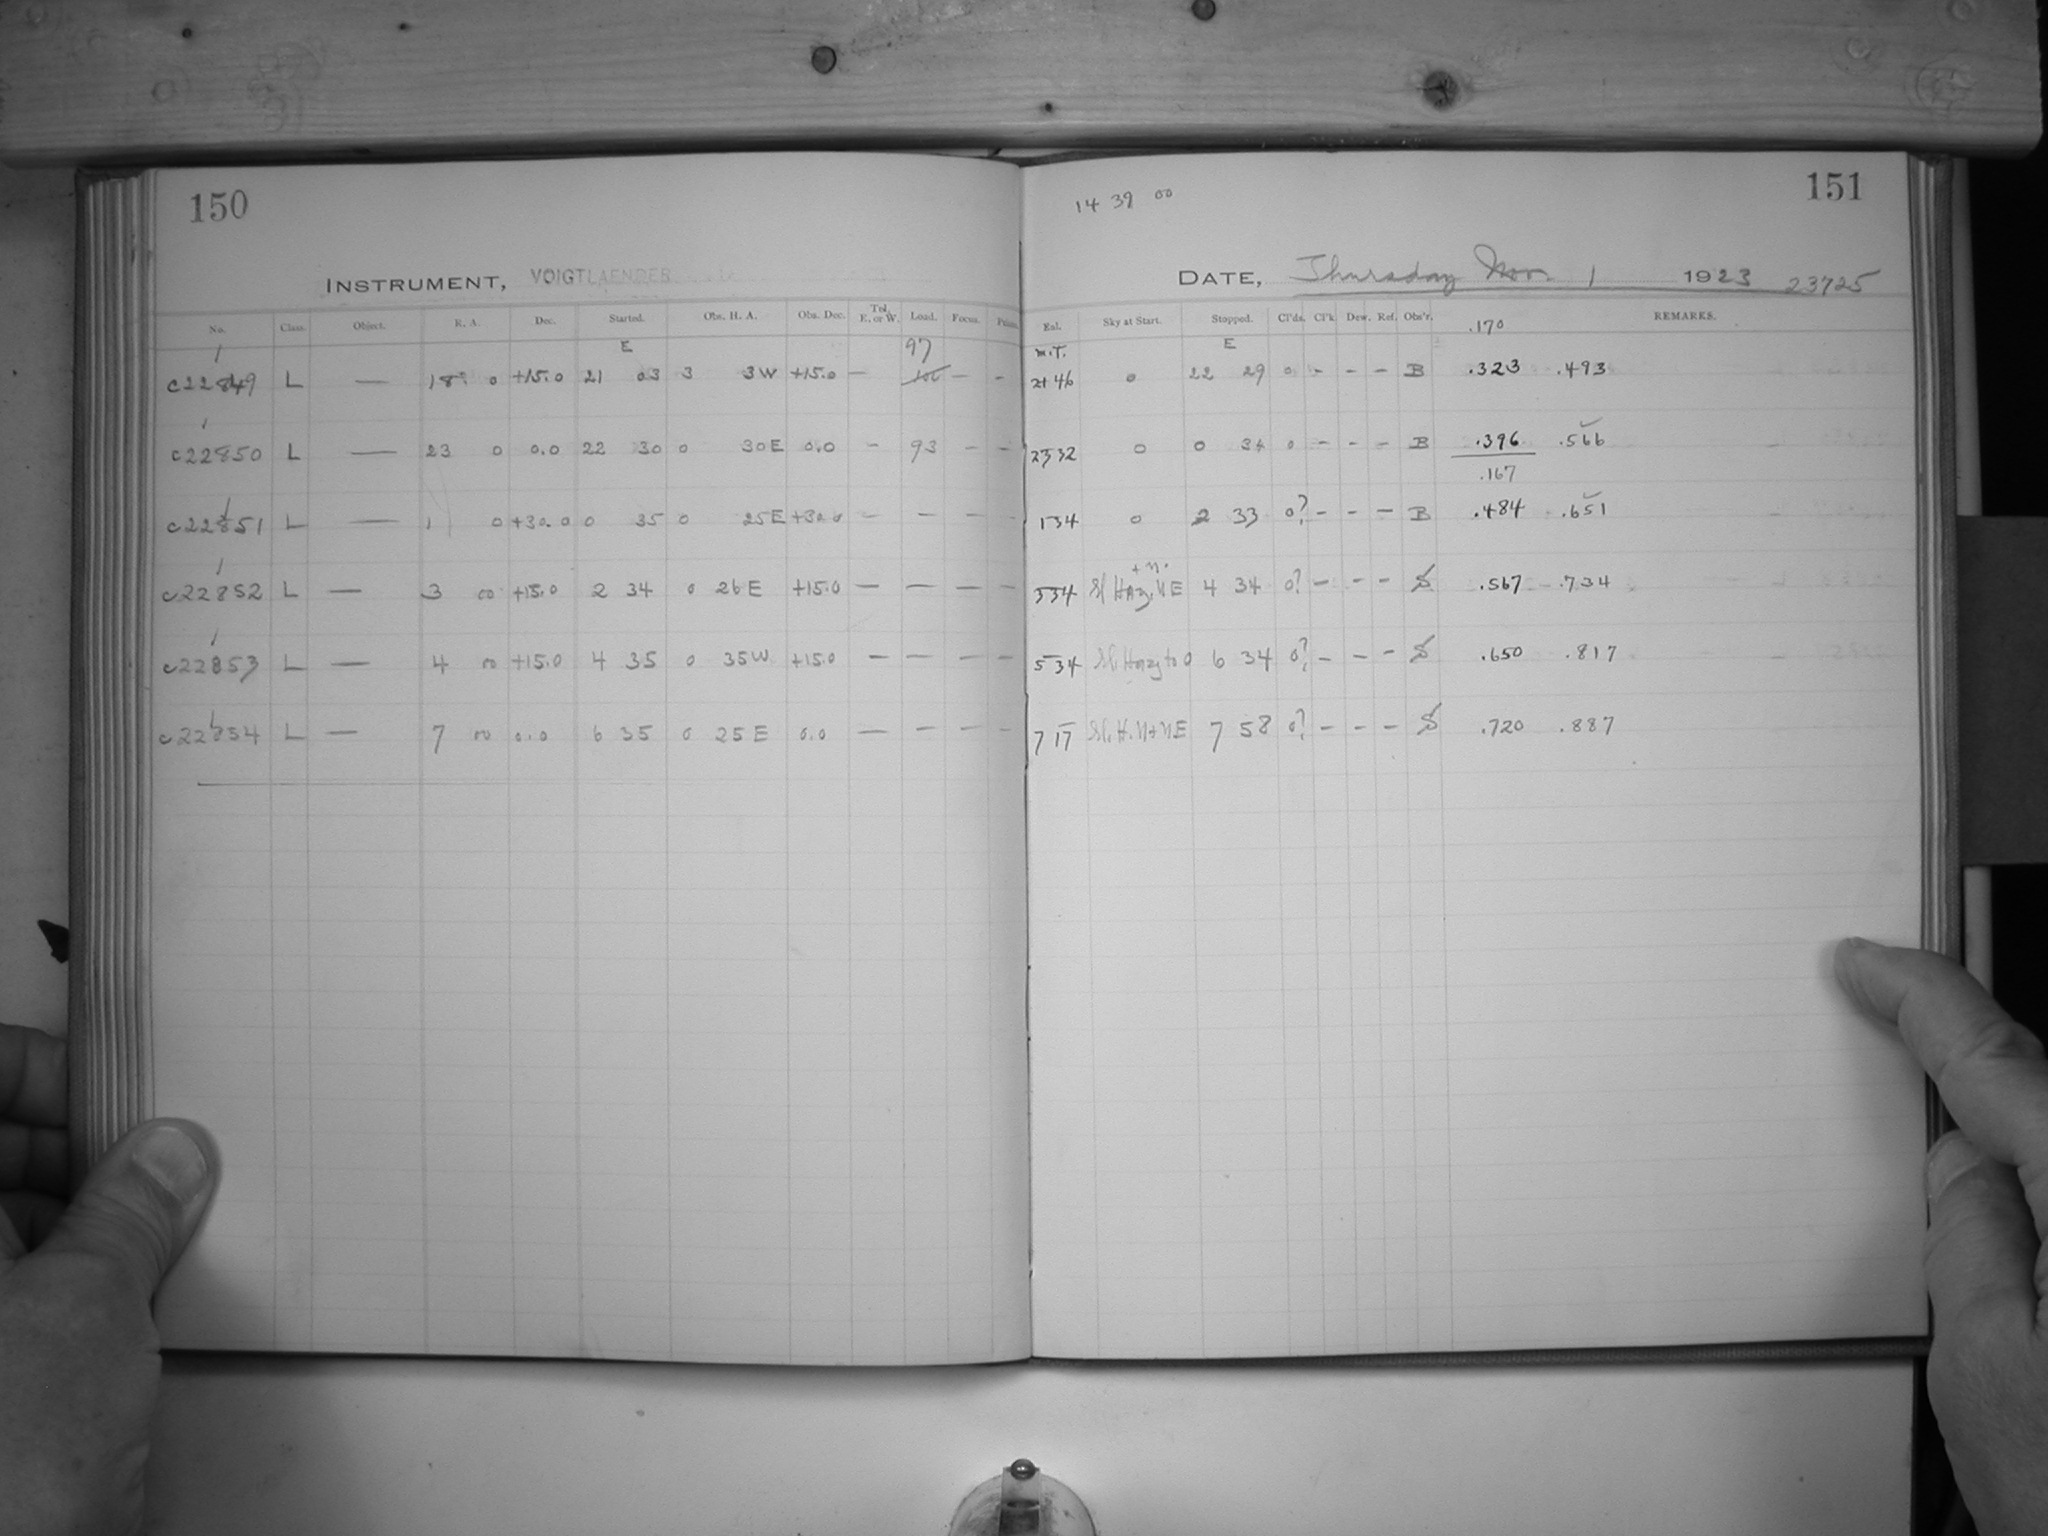 150
INSTRUMENT, VOIGTLAENDER
No. Class. Object. R. A. Dec. Started. Obs. H. A. Obs. Dec. Tel. E. or W. Load. Focus.
E 97
c22849 L — 18 0 +15.0 21 03 3 3W +15.0 — — -
c22850 L — 23 0 0.0 22 30 0 30E 0.0 - 93 - -
c22851 L — 1 0 +30.0 0 35 0 25E +30.0 — — — —
c22852 L — 3 00 +15.0 2 34 0 26E +15.0 — — — —
c22853 L — 4 00 +15.0 4 35 0 35W +15.0 — — — —
c22854 L — 7 00 0.0 6 35 0 25E 0.0 — — — —
14 39 00
151
DATE, Thursday Nov. 1 1923 23725
Sky at Start. Stopped. Cl'ds. Cl'k. Dew. Ref. Obs'r. .170 REMARKS.
m.T. E
21 46 0 22 29 0 - - - B .323 .493
23 32 0 0 34 0 - - - B .396 .566
.167
1 34 0 2 33 0? - - - B .484 .651
+ N.
3 34 Sl. Hazy NE 4 34 0? - - - S .567 .734
5 34 Sl. Hazy to 0 6 34 0? - - - S .650 .817
7 17 Sl. H. N+NE 7 58 0? - - - S .720 .887